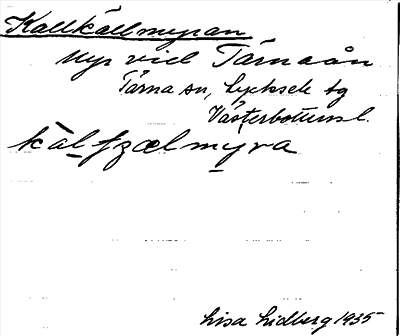 Kallkällmyran
Myr vid Tärnaån
Tärna sn, Lycksele tg
Västerbottensl.
kàlfzælmyra
Lisa Lidberg 1935